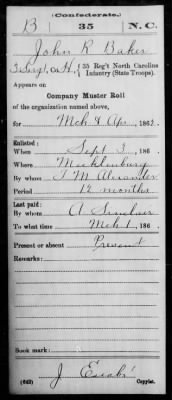 (Confederate.)
B 35 N.C.
John R Baker
3 Sergt, Co. H, { 35 Reg't North Carolina
Infantry (State Troops).
Appears on
Company Muster Roll
of the organization named above,
for Mch & Apr, 1862.
Enlisted:
When Sept 3, 186 .
Where Mecklenburg
By whom T M Alexander
Period 12 months
Last paid:
By whom A Sinclair
To what time Mch 1, 186 .
Present or absent Present
Remarks:
Book mark:
J
(642) Copyist.